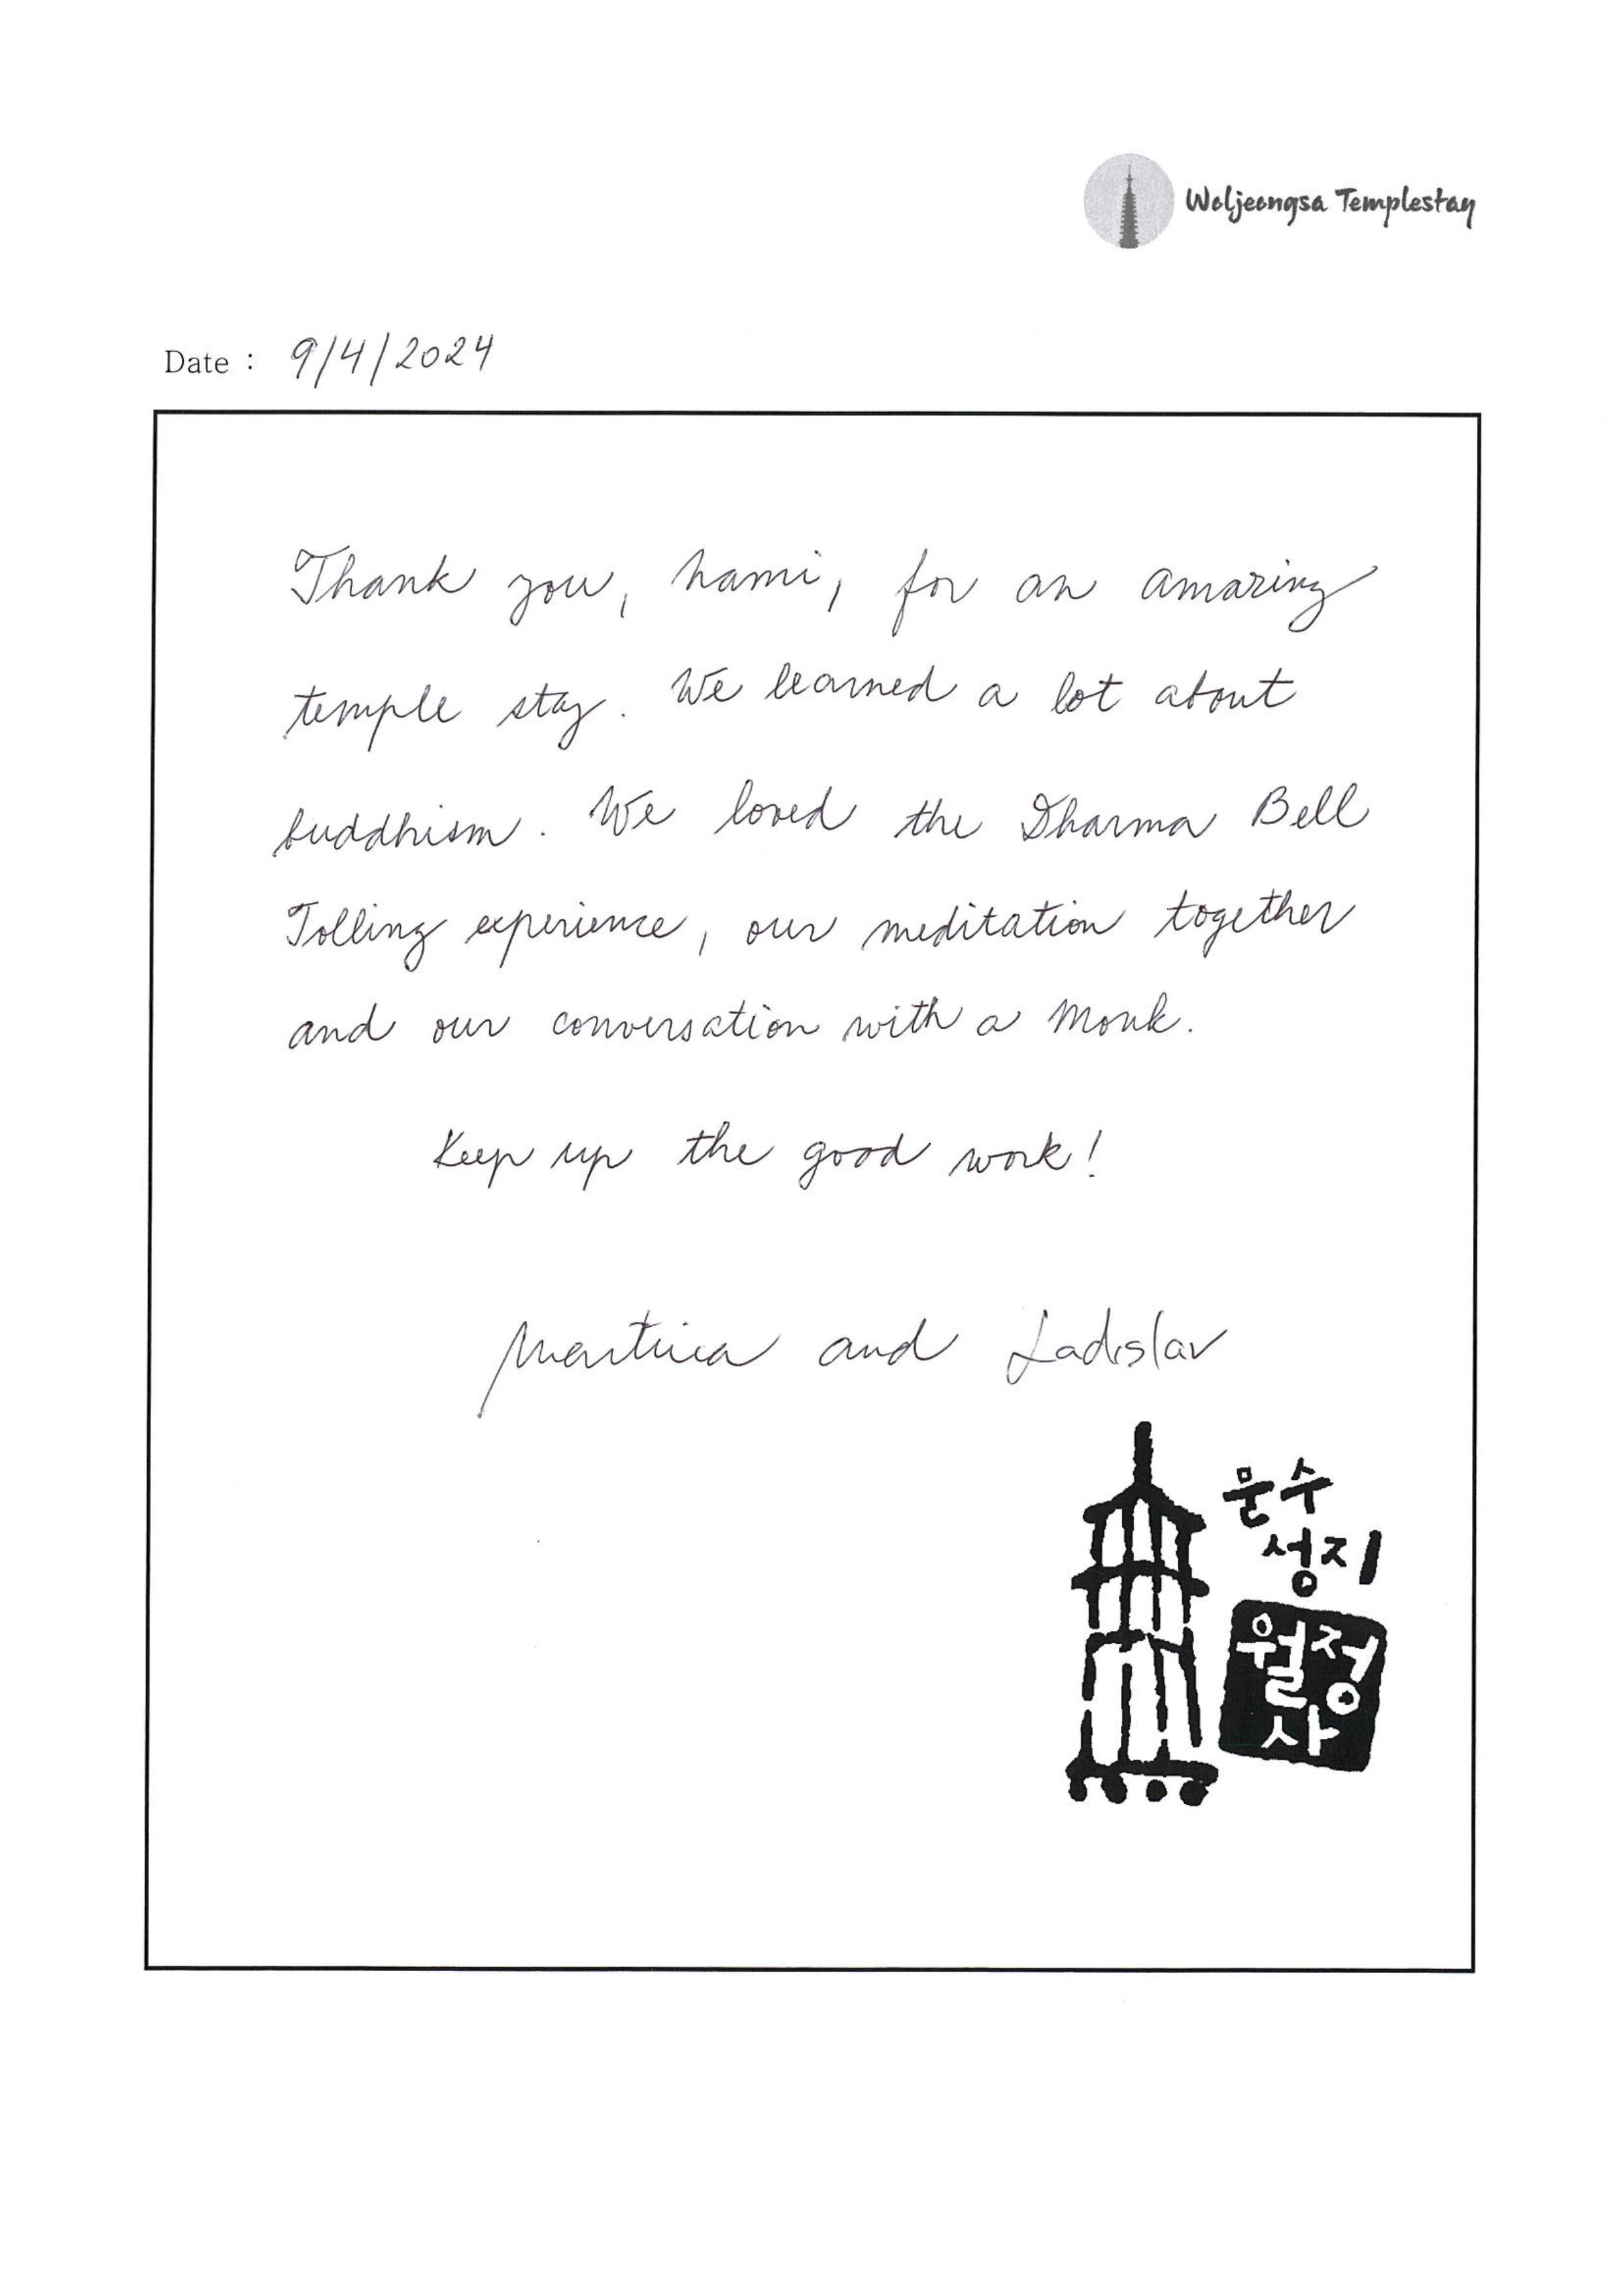 Woljeongsa Templestay
Date : 9/4/2024
Thank you, hami, for an amazing
temple stay. We learned a lot about
buddhism. We loved the Dharma Bell
Tolling experience, our meditation together
and our conversation with a Monk.
Keep up the good work!
Martina and Ladislav
문수
성지
월정
사